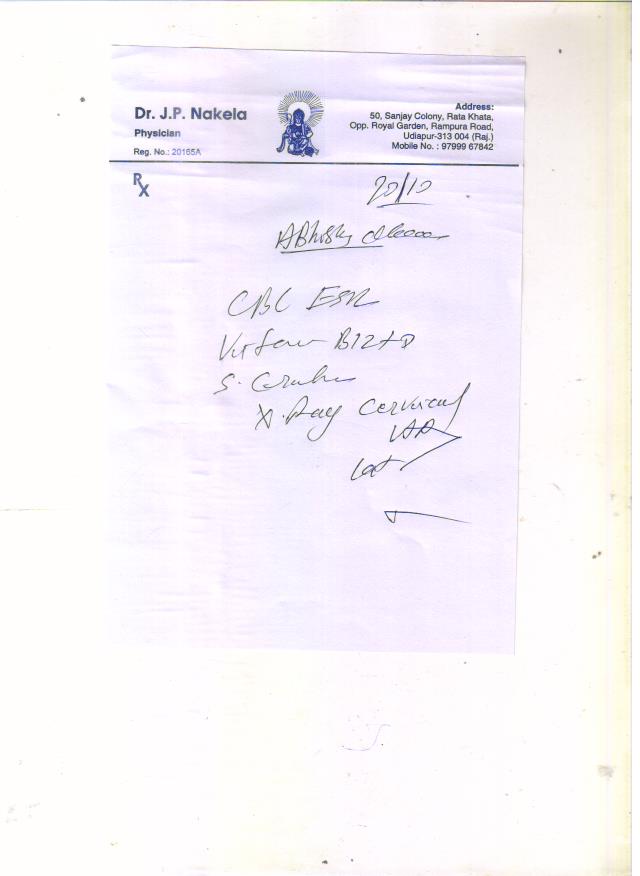 Dr. J.P. Nakela
Physician
Reg. No.: 20165A
Address:
50, Sanjay Colony, Rata Khata,
Opp. Royal Garden, Rampura Road,
Udiapur-313 004 (Raj.)
Mobile No. : 97999 67842
Rx
20/10
CBC ESR
B12 + D
S.
X. Ray Cervical
AP
Lat